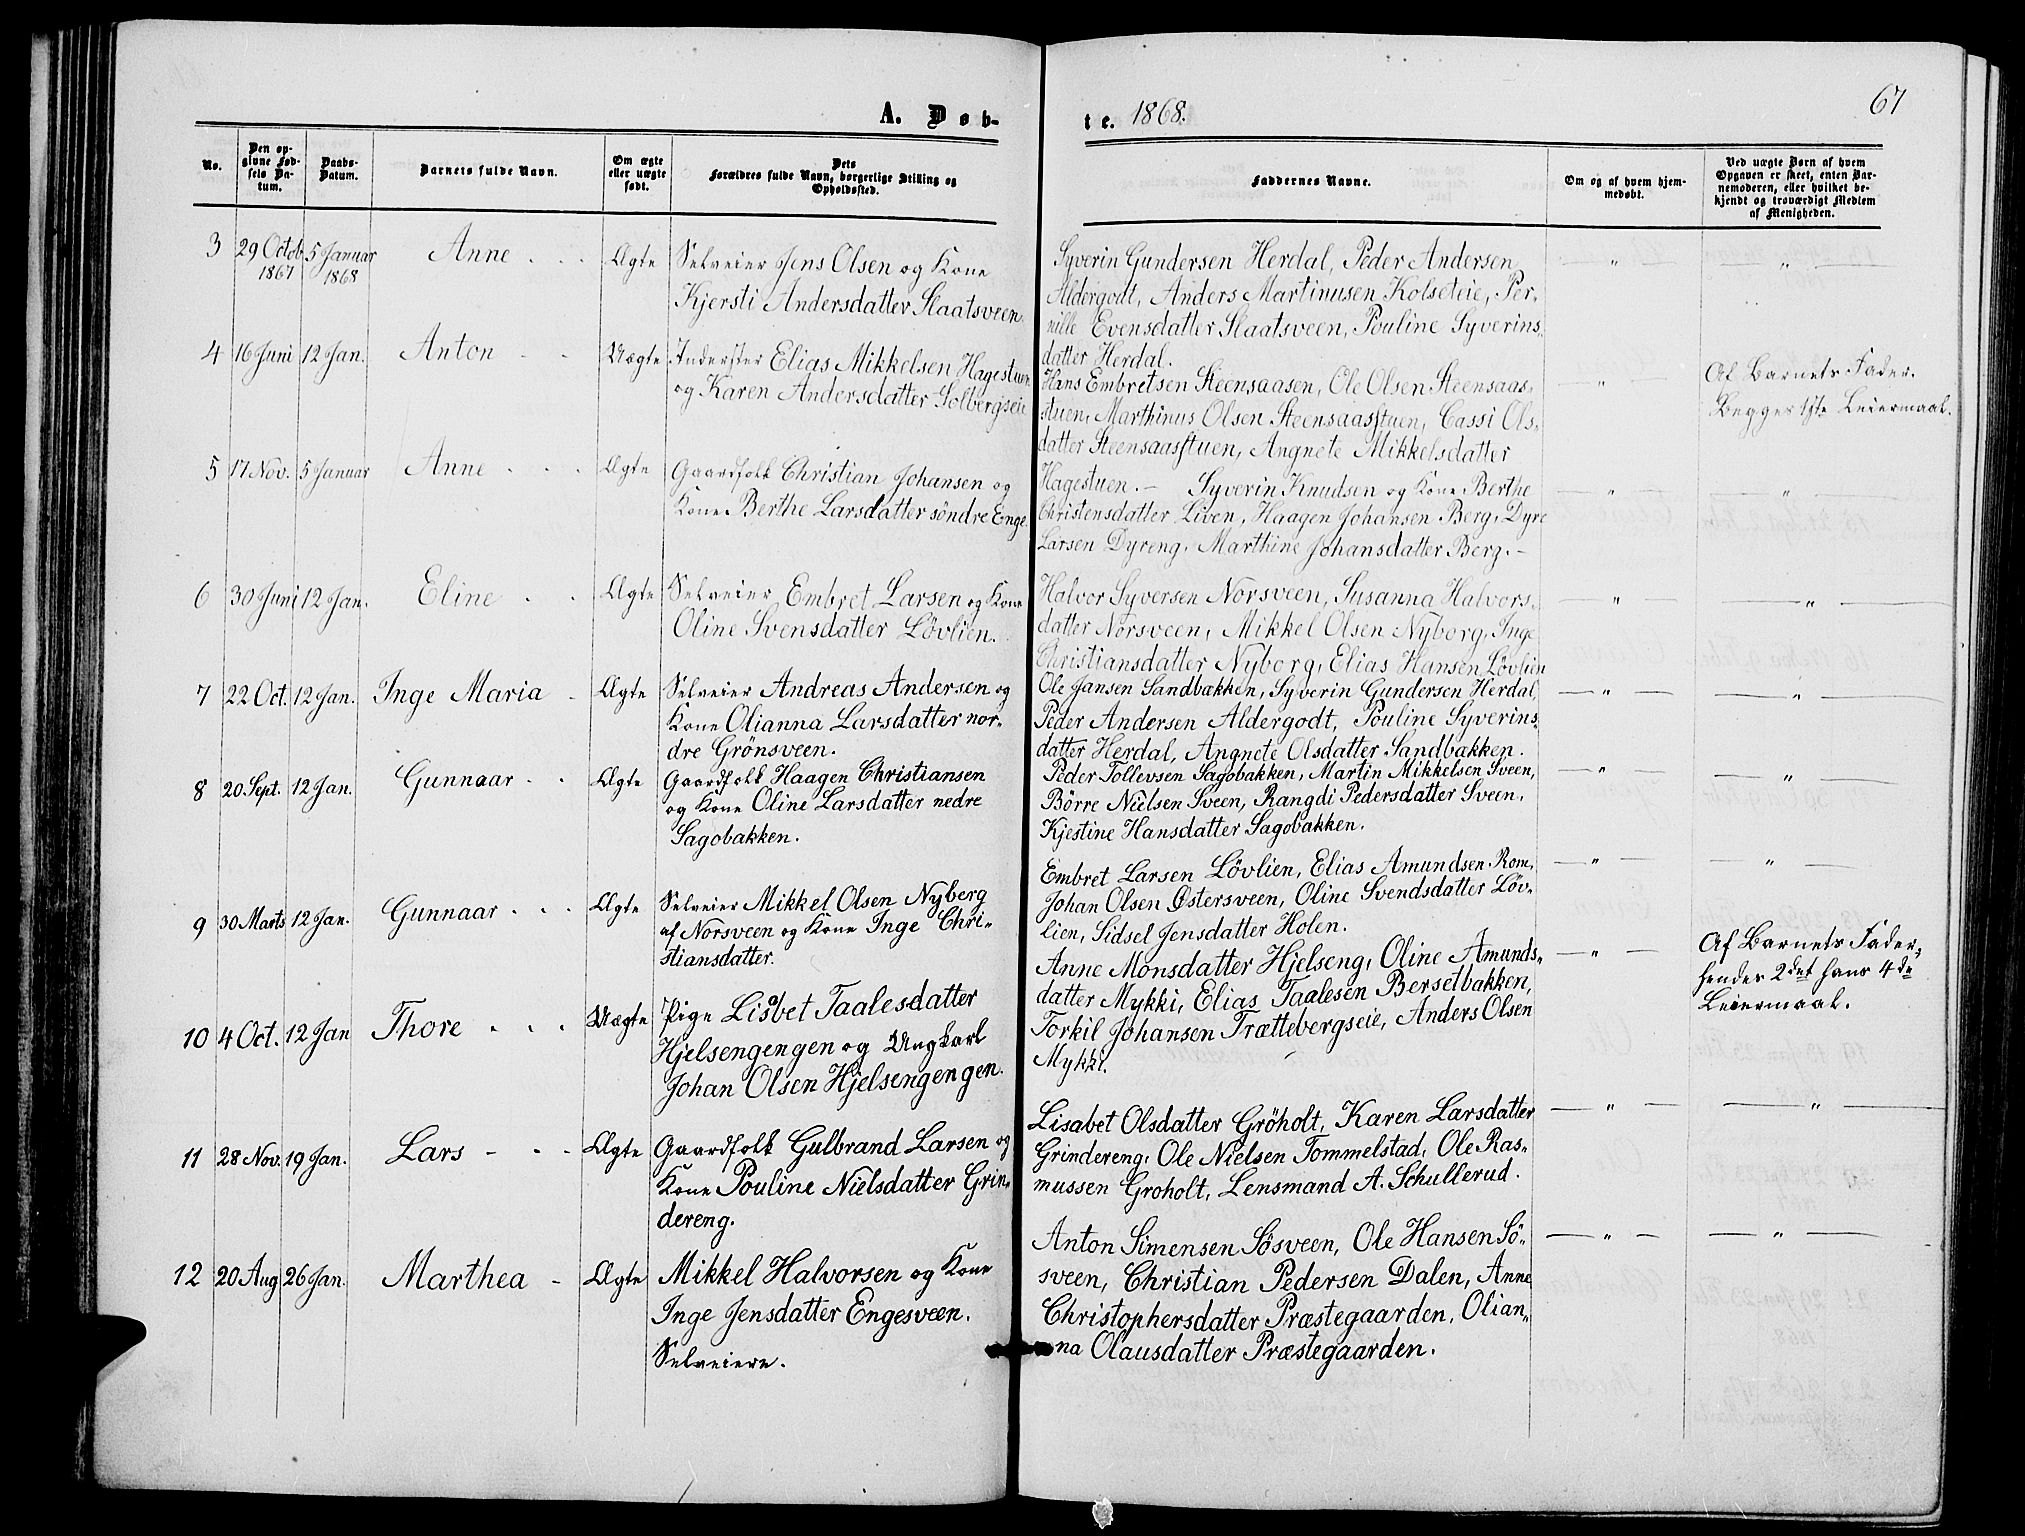 A. Døb-
te. 1868.
67
No.
Den op-
givne Fød-
sels Da-
tum.
Daabs-
Datum.
Barnets fulde Navn.
Om ægte
eller uægte
født.
Dets
Forældres fulde Navn, borgerlige Stilling og
Opholdssted.
Faddernes Navne.
Om og af hvem hjem-
medøbt.
Ved uægte Børn af hvem
Opgaven er skeet, enten Bar-
nemoderen, eller hvilket be-
kjendt og troværdigt Medlem
af Menigheden.
3 29 Octob. 5 Januar Anne Ægte Selveier Jens Olsen og Kone
1867 1868
Kjersti Andersdatter Slaatsveen.
Syverin Gundersen Herdal, Peder Andersen
Aldergodt, Anders Martinusen Kolseteie, Per-
nille Evensdatter Slaatsveen, Pouline Syverins-
datter Herdal.
4 16 Juni 12 Jan. Anton Uægte Inderster Elias Mikkelsen Hagestuen
og Karen Andersdatter Solbergseie
Hans Embretsen Steensaasen, Ole Olsen Steensaas-
stuen, Marthinus Olsen Steensaasstuen, Cassi Ols-
datter Steensaasstuen, Angnete Mikkelsdatter
Hagestuen.
Af Barnets Fader.
Begges 1ste Leiermaal.
5 17 Nov. 5 Januar Anne Ægte Gaardfolk Christian Johansen og
Kone Berthe Larsdatter söndre Enge.
Syverin Knudsen og Kone Berthe
Christensdatter Liven, Haagen Johansen Berg, Dyre
Larsen Dyreng, Marthine Johansdatter Berg.
6 30 Juni 12 Jan. Eline Ægte Selveier Embret Larsen og Kone
Oline Svensdatter Lövlien.
Halvor Syversen Norsveen, Susanna Halvors-
datter Norsveen, Mikkel Olsen Nyborg, Inge
Christiansdatter Nyborg, Elias Hansen Lövlien
7 22 Oct. 12 Jan. Inge Maria Ægte Selveier Andreas Andersen og
Kone Olianna Larsdatter nor-
dre Grönsveen.
Ole Jansen Sandbakken, Syverin Gundersen Herdal,
Peder Andersen Aldergodt, Pouline Syverins-
datter Herdal, Angnete Olsdatter Sandbakken.
8 20 Sept. 12 Jan. Gunnaar Ægte Gaardfolk Haagen Christiansen
og Kone Oline Larsdatter nedre
Sagobakken.
Peder Tollevsen Sagobakken, Martin Mikkelsen Sveen,
Börre Nielsen Sveen, Rangdi Pedersdatter Sveen,
Kjestine Hansdatter Sagobakken.
9 30 Marts 12 Jan. Gunnaar Ægte Selveier Mikkel Olsen Nyberg
af Norsveen og Kone Inge Chri-
stiansdatter.
Embret Larsen Lövlien, Elias Amundsen Rom,
Johan Olsen Östersveen, Oline Svendsdatter Löv-
lien, Sidsel Jensdatter Holen.
10 4 Oct. 12 Jan Thore Uægte Pige Lisbet Taalesdatter
Hjelsengengen og Ungkarl
Johan Olsen Hjelsengengen.
Anne Monsdatter Hjelseng, Oline Amunds-
datter Mykki, Elias Taalesen Berselbakken,
Torkil Johansen Trættebergseie, Anders Olsen
Mykki.
Af Barnets Fader,
hendes 2det hans 4de
Leiermaal.
11 28 Nov. 19 Jan. Lars Ægte Gaardfolk Gulbrand Larsen og
Kone Pouline Nielsdatter Grin-
dereng.
Lisabet Olsdatter Gröholt, Karen Larsdatter
Grindereng, Ole Nielsen Tommelstad, Ole Ras-
mussen Groholt, Lensmand A. Schullerud.
12 20 Aug 26 Jan. Marthea Ægte Mikkel Halvorsen og Kone
Inge Jensdatter Engesveen.
Selveiere.
Anton Simensen Sösveen, Ole Hansen Sö-
sveen, Christian Pedersen Dalen, Anne
Christophersdatter Præstegaarden, Olian-
na Olausdatter Præstegaarden.